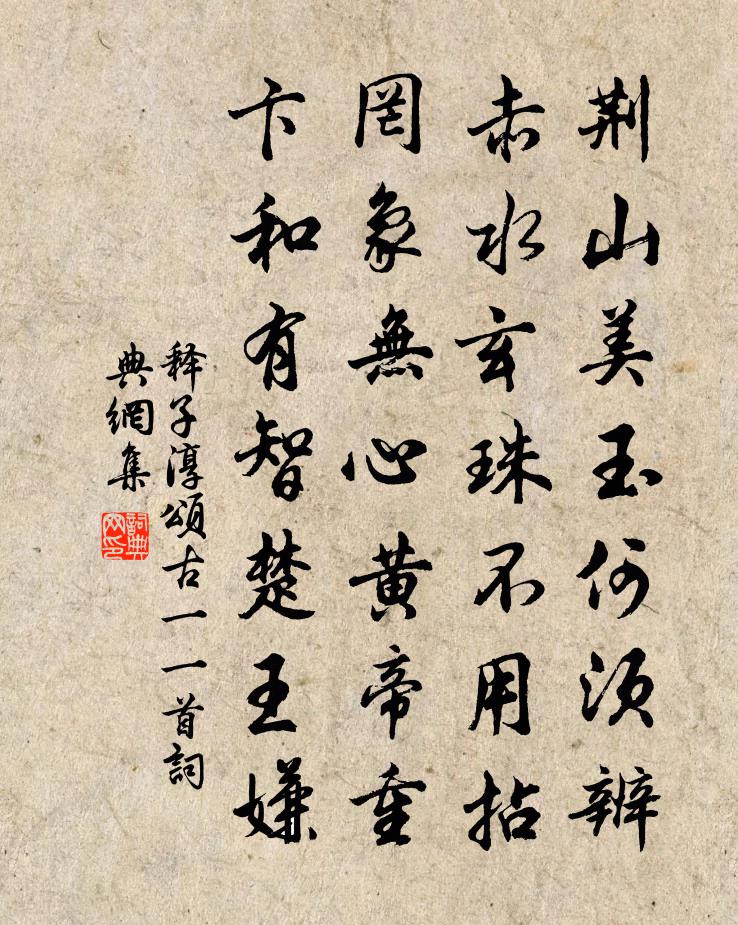 荆山美玉何須辨
赤水玄珠不用拈
罔象無心黄帝重
卞和有智楚王嫌
释子淳頌古一一首詞
典網集
詞典
网印